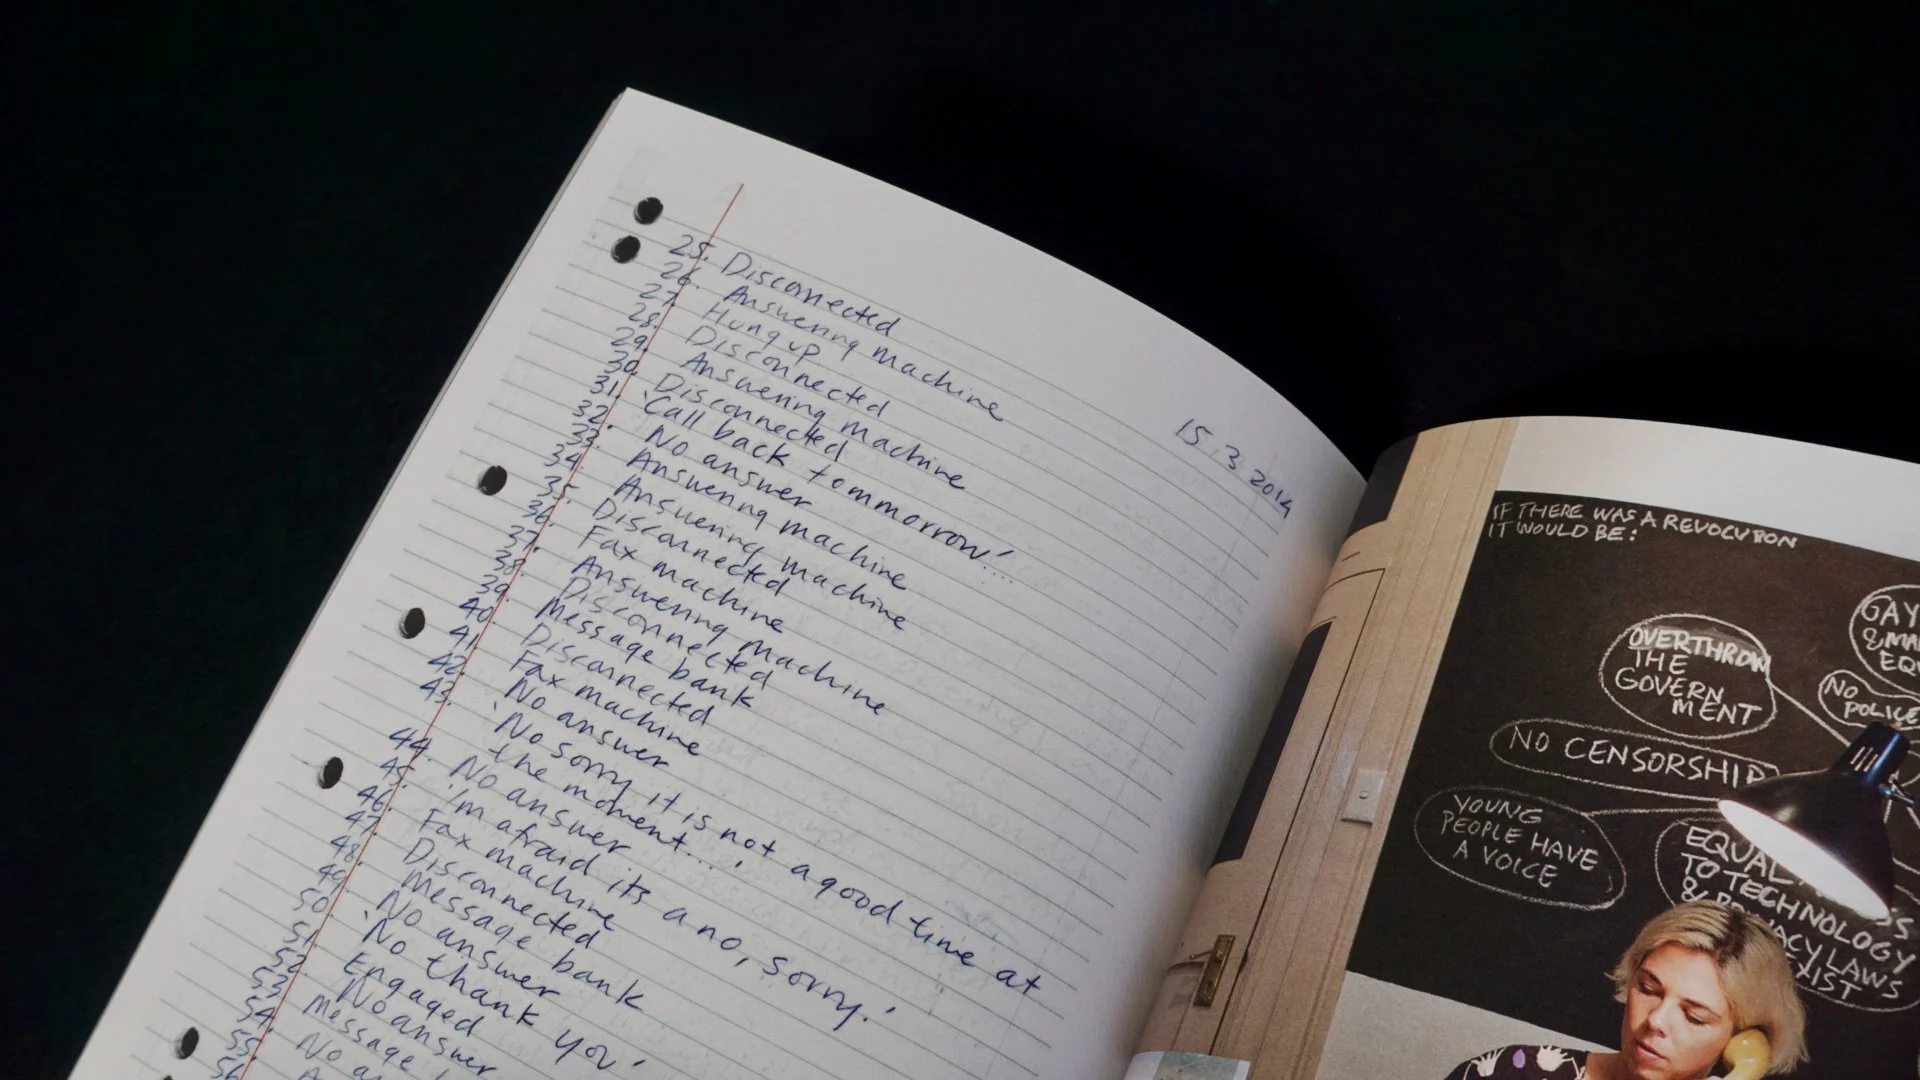 15.3 2014
25. Disconnected
26. Answering machine
27. Hung up
28. Disconnected
29. Answering machine
30. Disconnected
31. 'Call back tommorrow'....
32. No answer
33. Answering machine
34. Answering machine
35. Disconnected
36. Fax machine
37. Answering machine
38. Disconnected
39. Message bank
40. Disconnected
41. Fax machine
42. No answer
43. 'No sorry it is not a good time at
the moment....'
44. No answer
45. 'I'm afraid its a no, sorry.'
46. Fax machine
47. Disconnected
48. Message bank
49. No answer
50. 'No thank you'
51. Engaged
52. No answer
53. Message
54. No
55.
56.
IF THERE WAS A REVOLUTION
IT WOULD BE:
OVERTHROW
THE
GOVERN
MENT
GAY
&
EQ
NO
POLICE
NO CENSORSHIP
YOUNG
PEOPLE HAVE
A VOICE
EQUAL
TO TECHNOLOGY
&
LAWS
EXIST